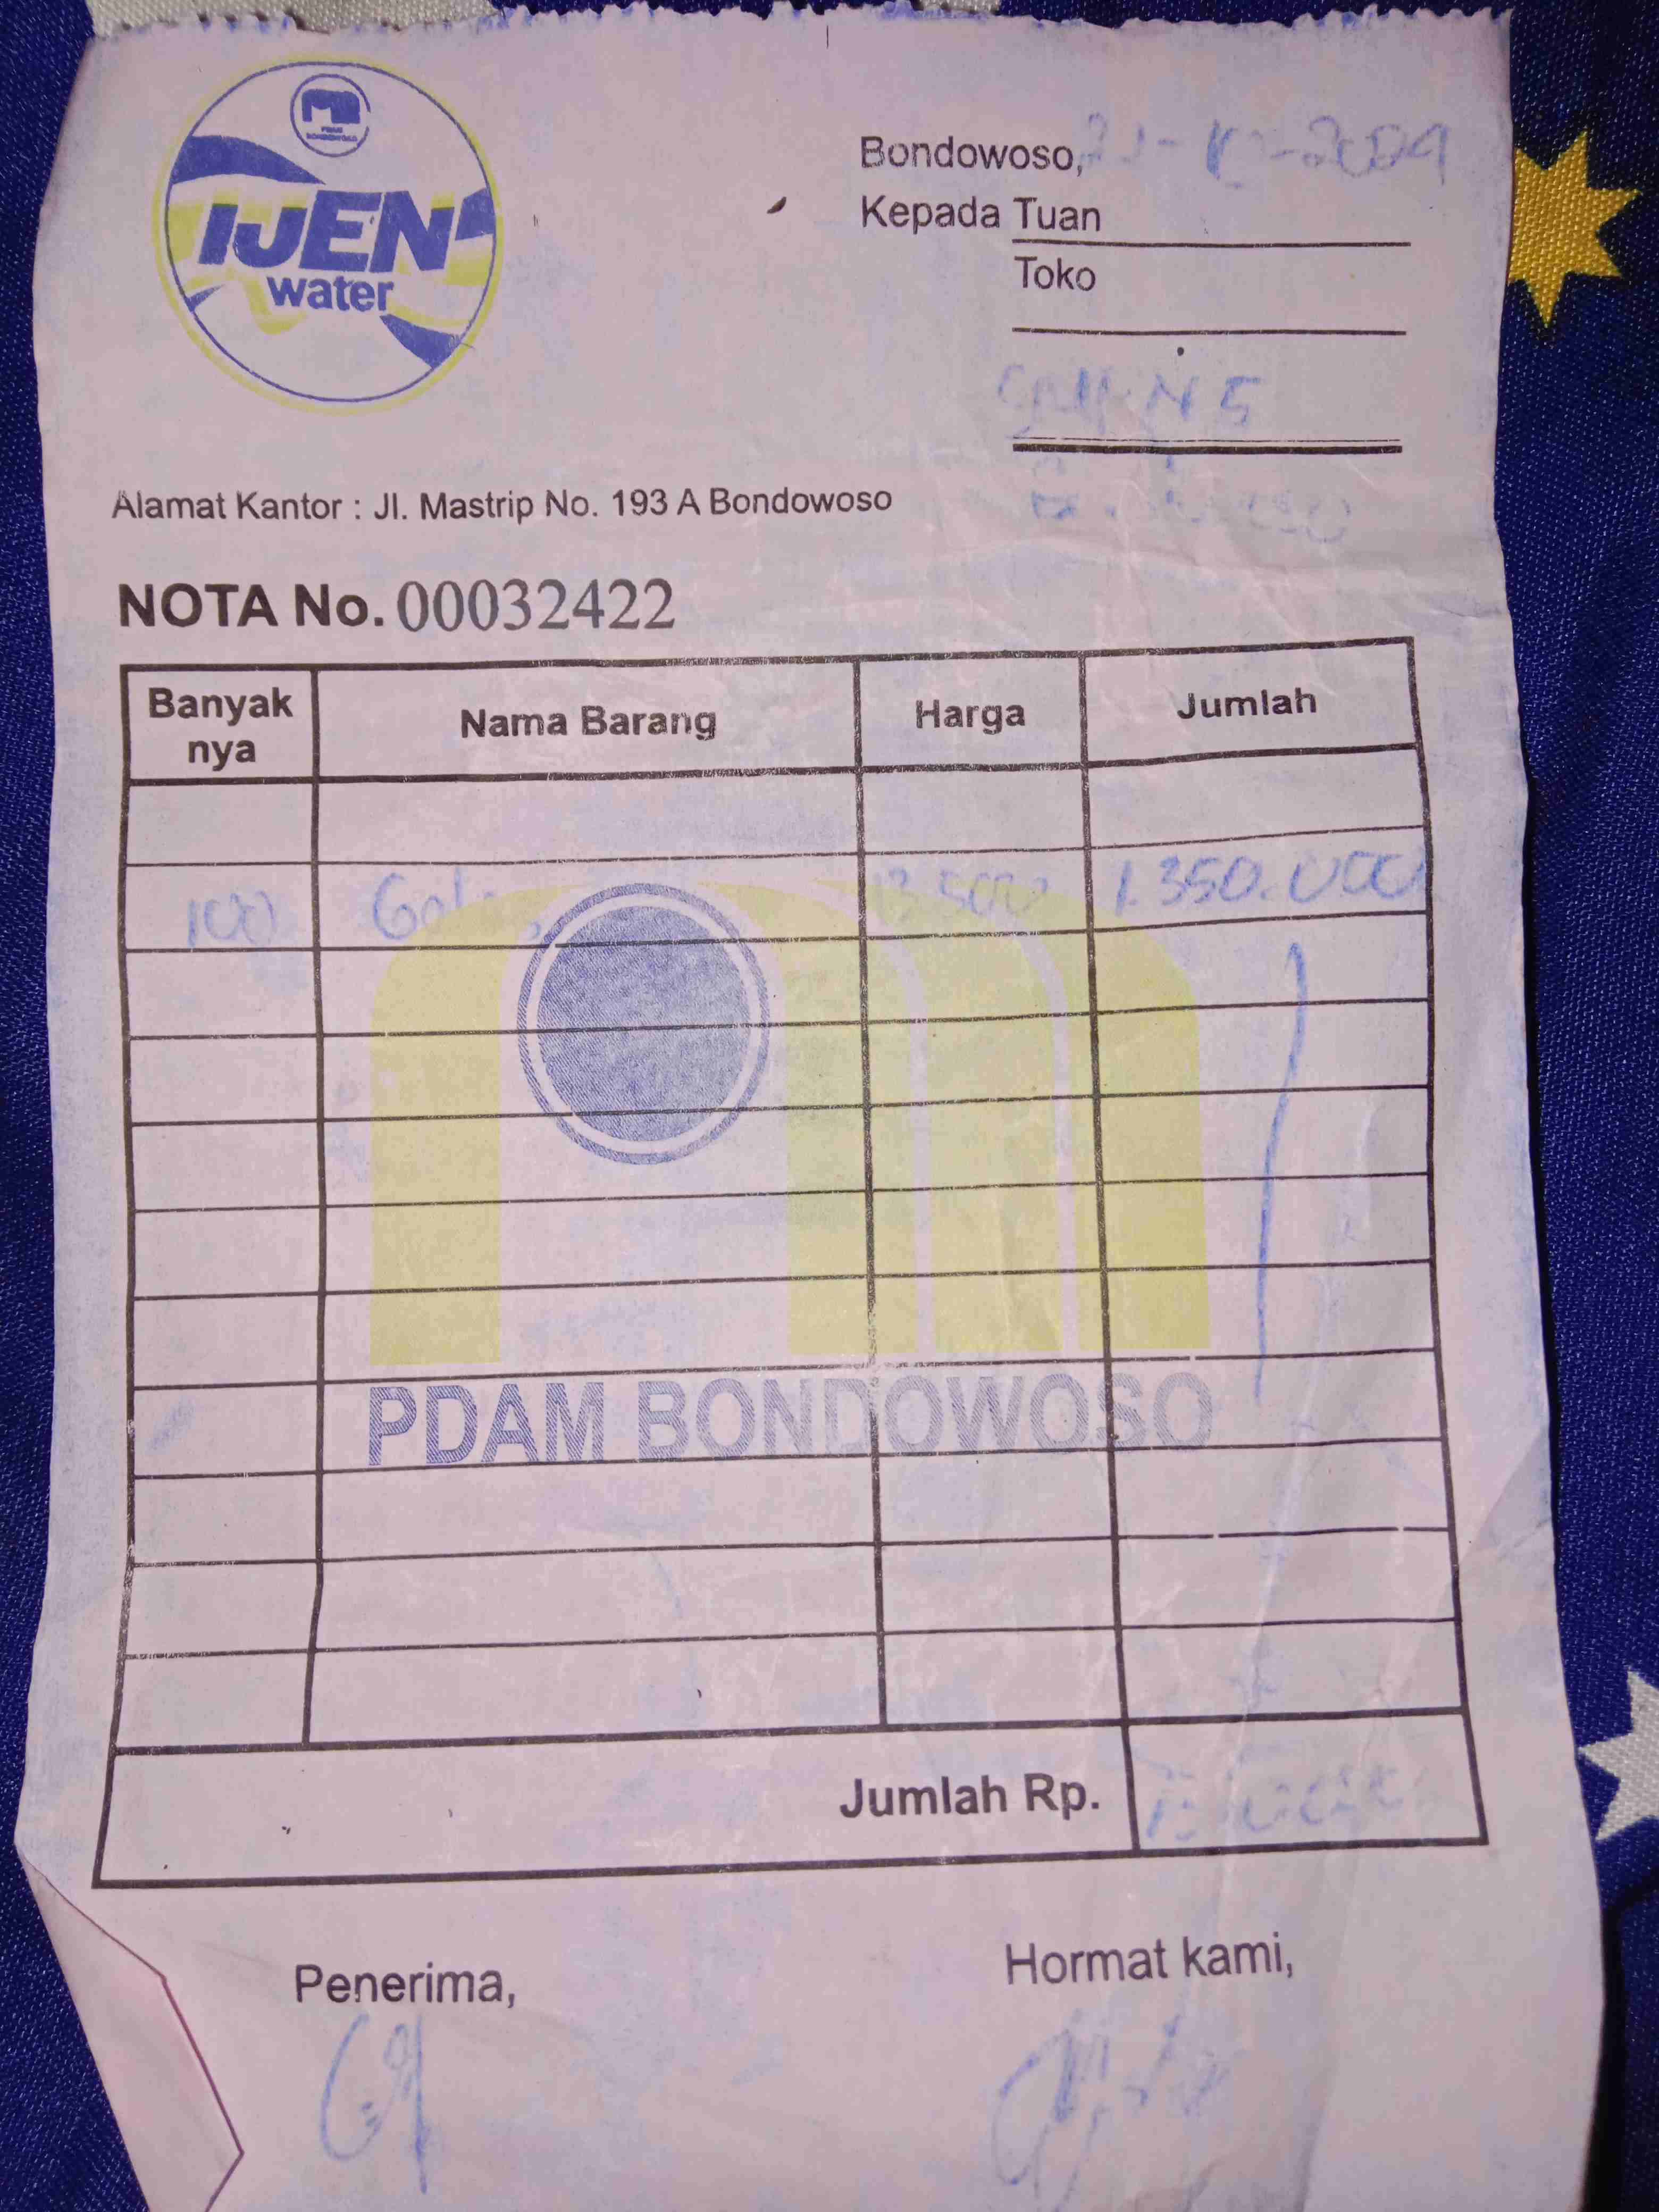 PDAM BONDOWOSO
IJEN
water
Bondowoso,
Kepada Tuan
Toko
Alamat Kantor : Jl. Mastrip No. 193 A Bondowoso
NOTA No. 00032422
Banyak nya Nama Barang Harga Jumlah
100 13.500 1.350.000
PDAM BONDOWOSO
Jumlah Rp.
Penerima,
Hormat kami,